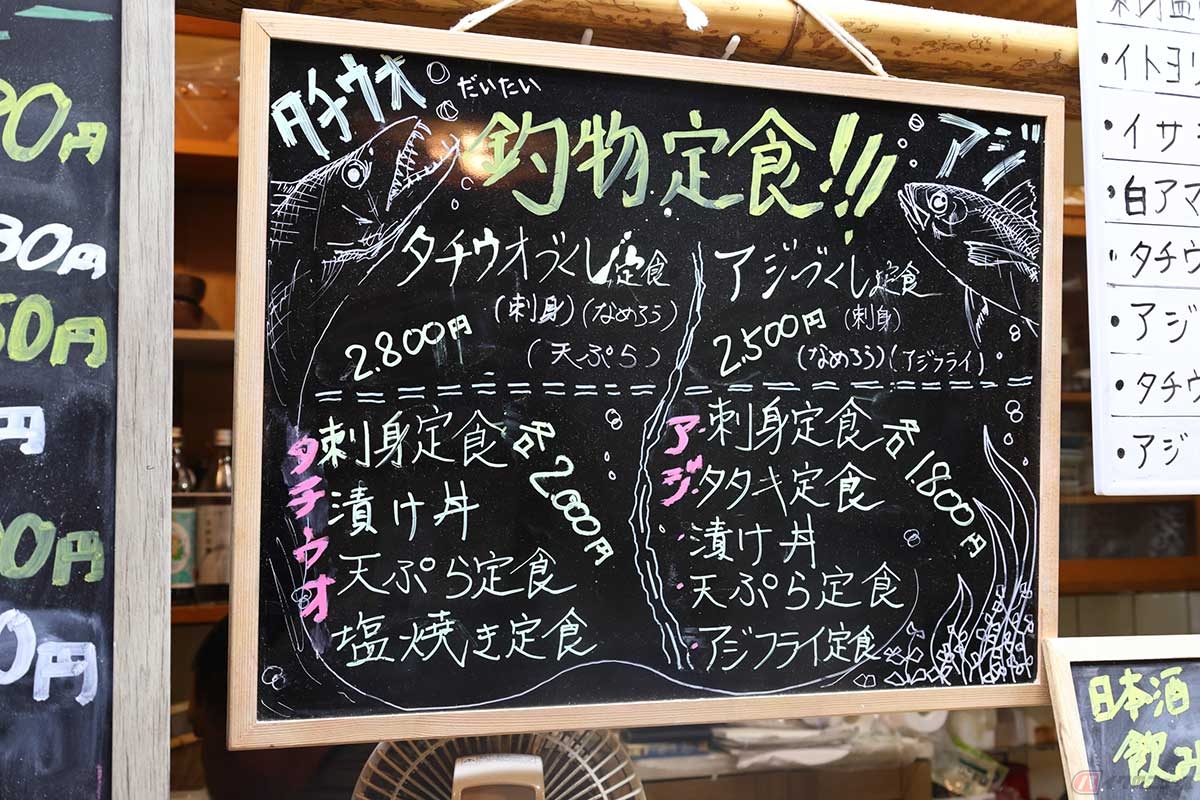 00円
80円
50円
円
00円
0円
タチウオ
だいたい
釣物定食!!!
アジ
タチウオづくし定食
(刺身)(なめろう)
2.800円
(天ぷら)
アジづくし定食
(刺身)
2,500円
(なめろう)(アジフライ)
タチウオ
刺身定食
漬け丼
天ぷら定食
塩焼き定食
各2.000円
アジ
・刺身定食
・タタキ定食
・漬け丼
・天ぷら定食
・アジフライ定食
各1.800円
・イトヨリ
・イサ
・白アマ
・タチウ
・アジ
・タチウ
・アジ
日本酒
飲み